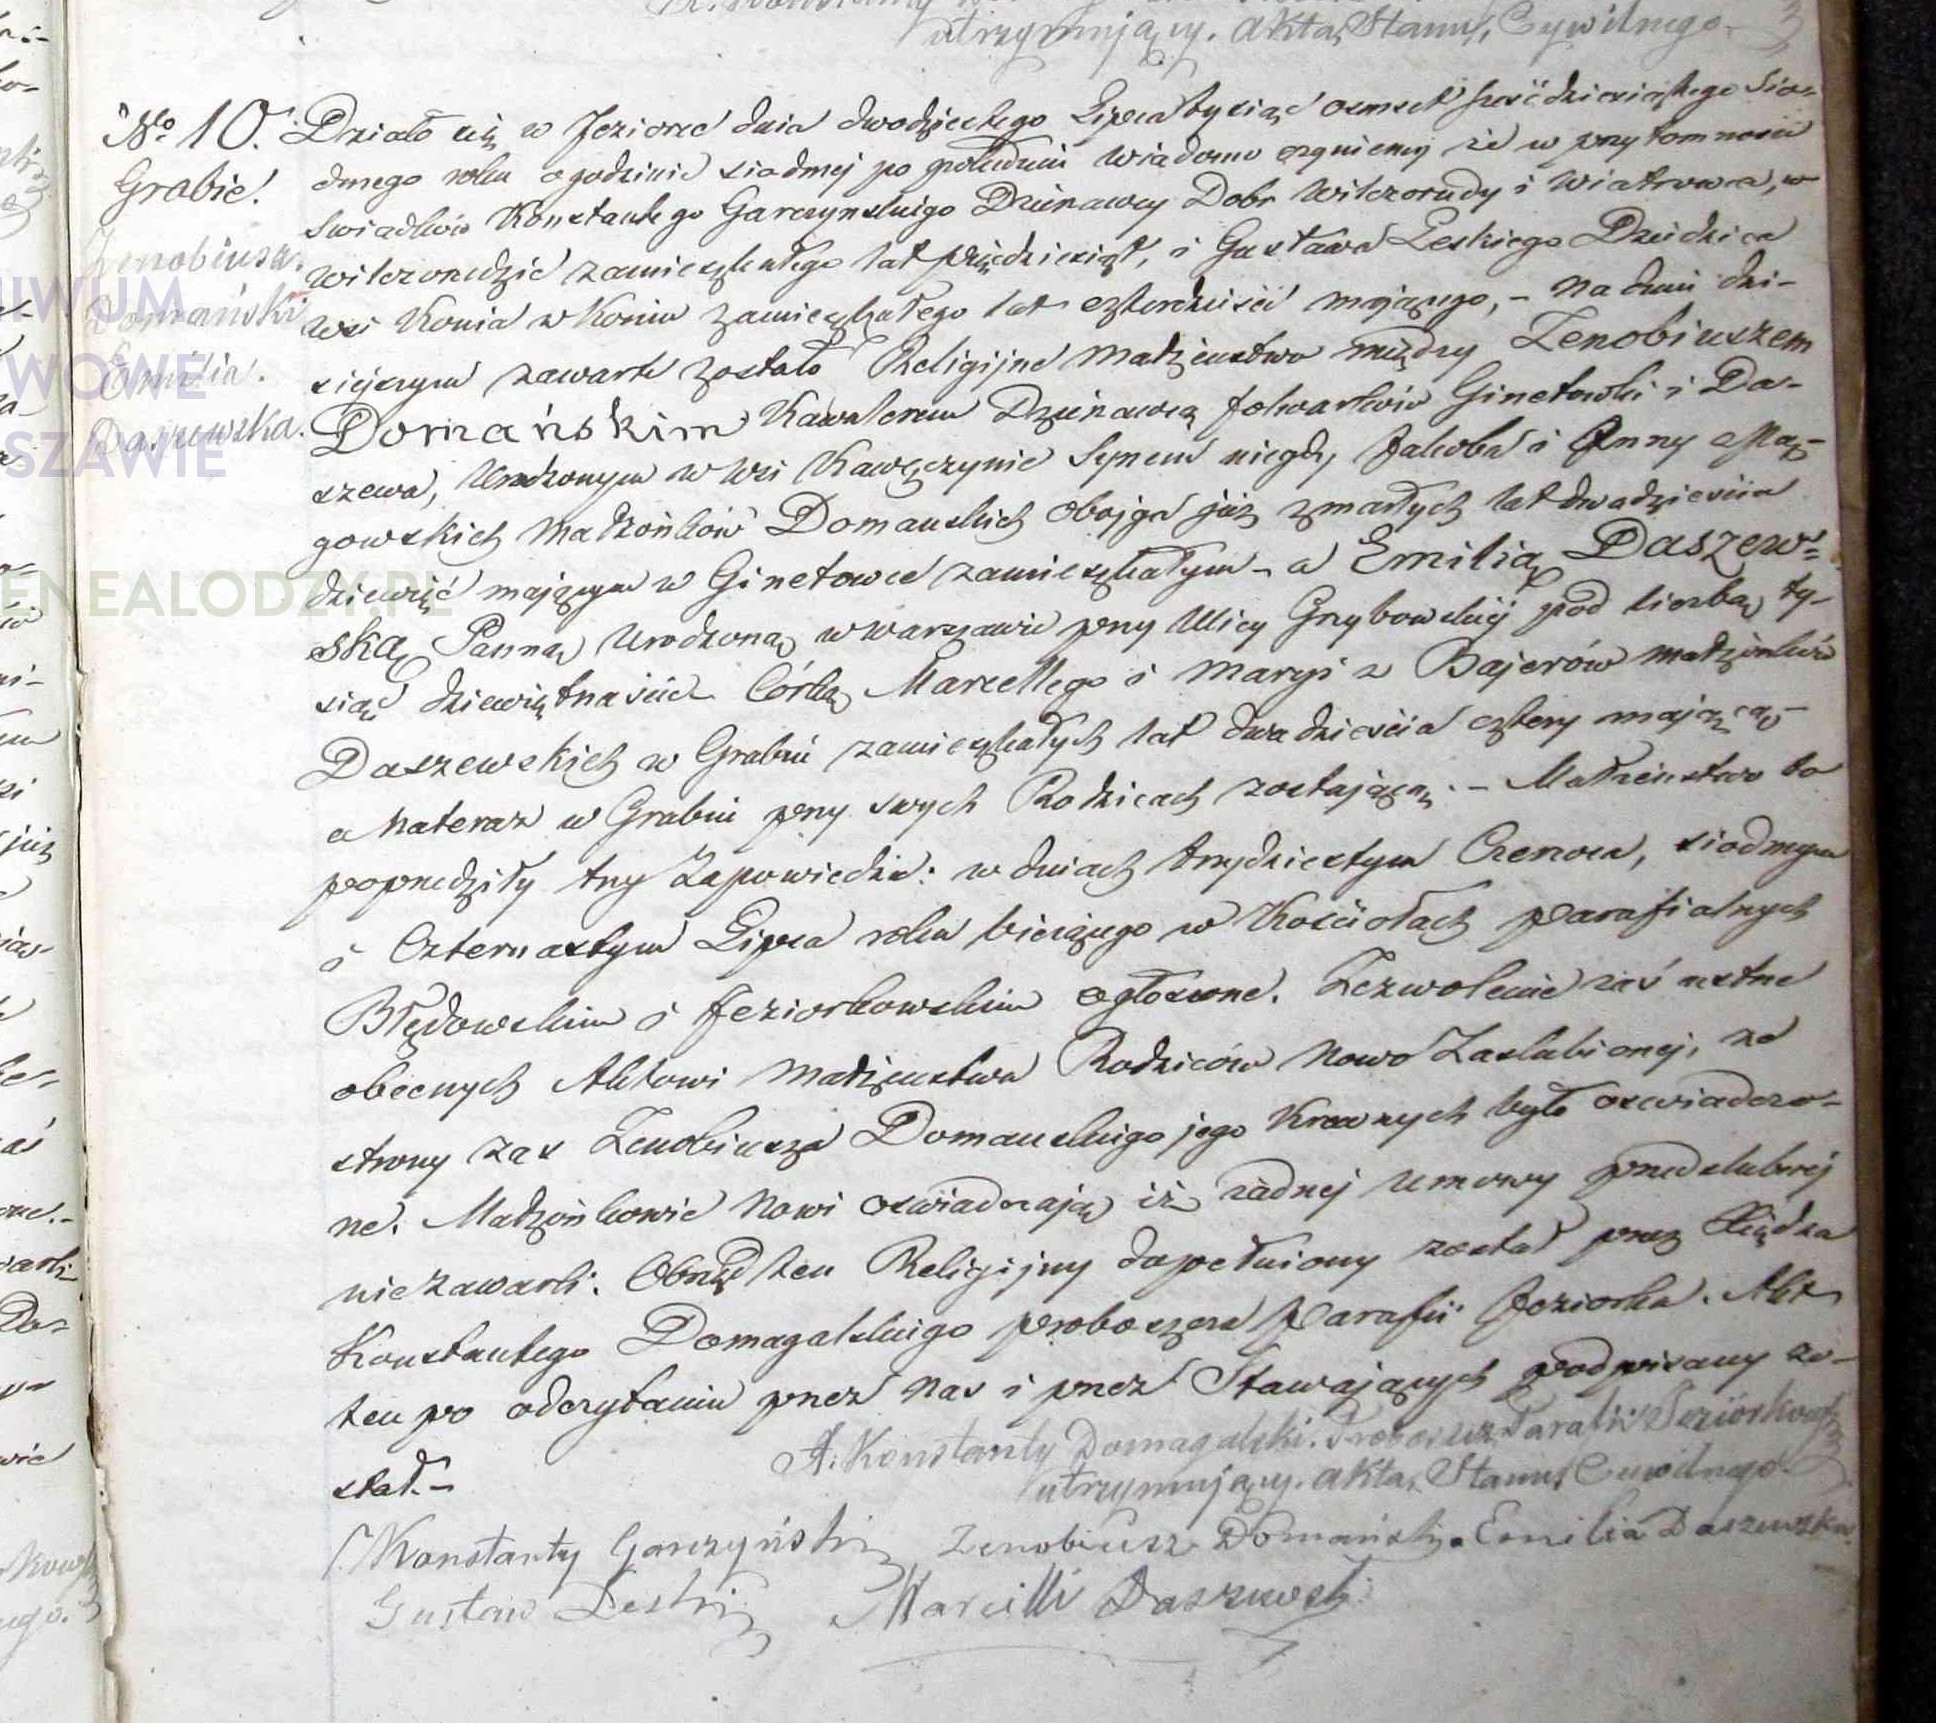 utrzymujący. akta, Stanu, Cywilnego.
No 10.
Grabie.
Zenobiusz.
Domański
Emilia.
Daszewska.
Działo się w Jeziorce dnia dwudziestego Lipca tysiąc osmset sześćdziesiątego sio-
dmego roku o godzinie siodmej po południu Wiadomo czyniemy że w przytomnosci
Swiadków Konstantego Garczynskiego Dzierzawcy Dobr Wilczorudy i Wiatrowca, w
Wilczorudzie zamieszkałego lat pięćdziesiąt, i Gustawa Leskiego Dziedzica
wsi Konia w Koniu zamieszkałego lat czterdzieści mającego, - na dniu dzi-
siejszym zawarte zostało Religijne Małżeństwo między Zenobiuszem
Domańskim Kawalerem Dzierzawcą folwarków Ginetowki i Da-
szewa, Urodzonym w Wsi Kawęczynie Synem niegdy Jakoba i Anny Maz-
gowskich Małżonków Domanskich obojga już zmarłych lat dwadzieścia
dziewięć mającym w Ginetowce zamieszkałym - a Emilią Daszew-
ską Panną Urodzoną w Warszawie przy Ulicy Grzybowskiej pod liczbą ty-
siąc dziewiętnaście Córką Marcellego i Maryi z Bajerów małżonków
Daszewskich w Grabiu zamieszkałych lat dwadzieścia cztery mającą -
a Na teraz w Grabiu przy swych Rodzicach zostającą. - Małżeństwo to
poprzedziły trzy Zapowiedzie: w dniach trzydziestym Czerwca, siodmym
i Czternastym Lipca roku bieżącego w Kościołach parafialnych
Błędowskim i Jeziorkowskim ogłoszone. Zezwolenie zaś ustne
obecnych Aktowi małżeństwa Rodziców Nowo Zaslubionej, ze
strony zas Zenobiusza Domanskiego jego Krewnych było oswiadczo-
ne. Małżonkowie Nowi oswiadczają iż żadnej umowy przedslubnej
nie zawarli. Obrzęd ten Religijny dopełniony został przez Księdza
Konstantego Domagalskiego proboszcza parafii Jeziorka. Akt
ten po odczytaniu przez Nas i przez Stawających podpisany zo-
stał. -
X. Konstanty Domagalski. Proboszcz Parafii Jeziorkowsk
utrzymujący. akta, Stanu, Cywilnego.
Konstanty Garczyński Zenobiusz Domański. Emilia Daszewska.
Gustaw Leski Marcelli Daszewski
GENEALODZY.PL